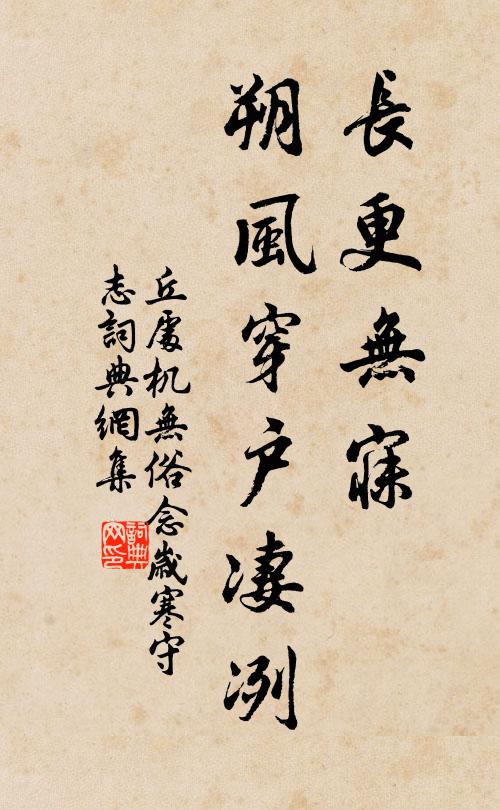 長更無寐
朔風穿戶凄冽
丘處机無俗念歲寒守
志詞典網集
詞典
网印